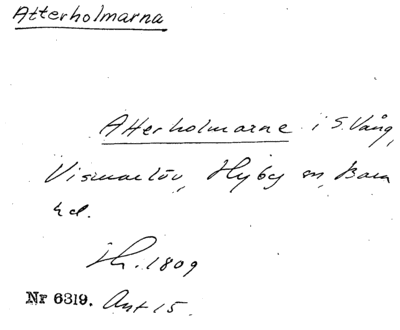 Atterholmarna
Atterholmarne i S. Vång,
Vismarlöv, Hyby sn, Bara
hd.
1809
Nr 6319. Ant 15.